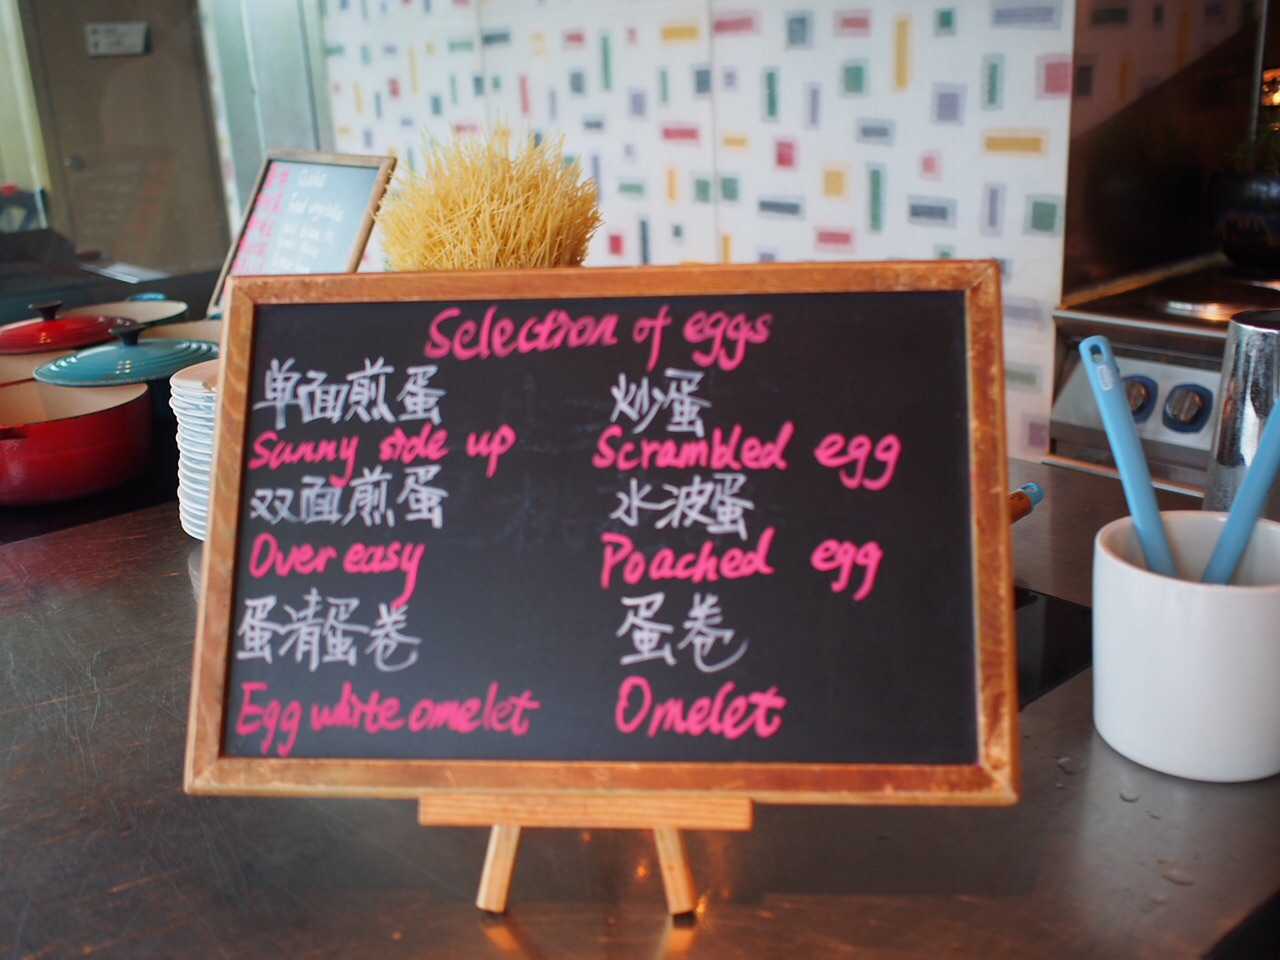 Selection of eggs
单面煎蛋
Sunny side up
双面煎蛋
Over easy
蛋清蛋卷
Egg white omelet
炒蛋
Scrambled egg
水波蛋
Poached egg
蛋卷
Omelet